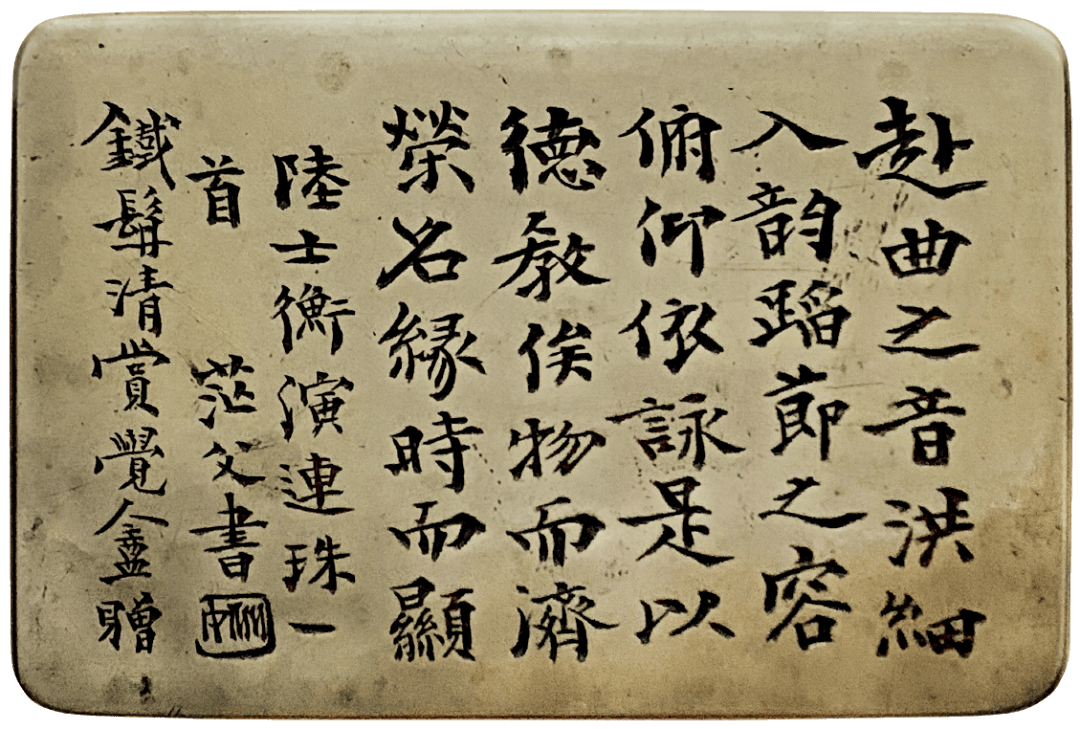 赴曲之音洪細
入韵蹈節之容
俯仰依詠是以
德教俟物而濟
榮名緣時而顯
陸士衡演連珠一
首 茫父書
鐵髯清賞覺盦贈